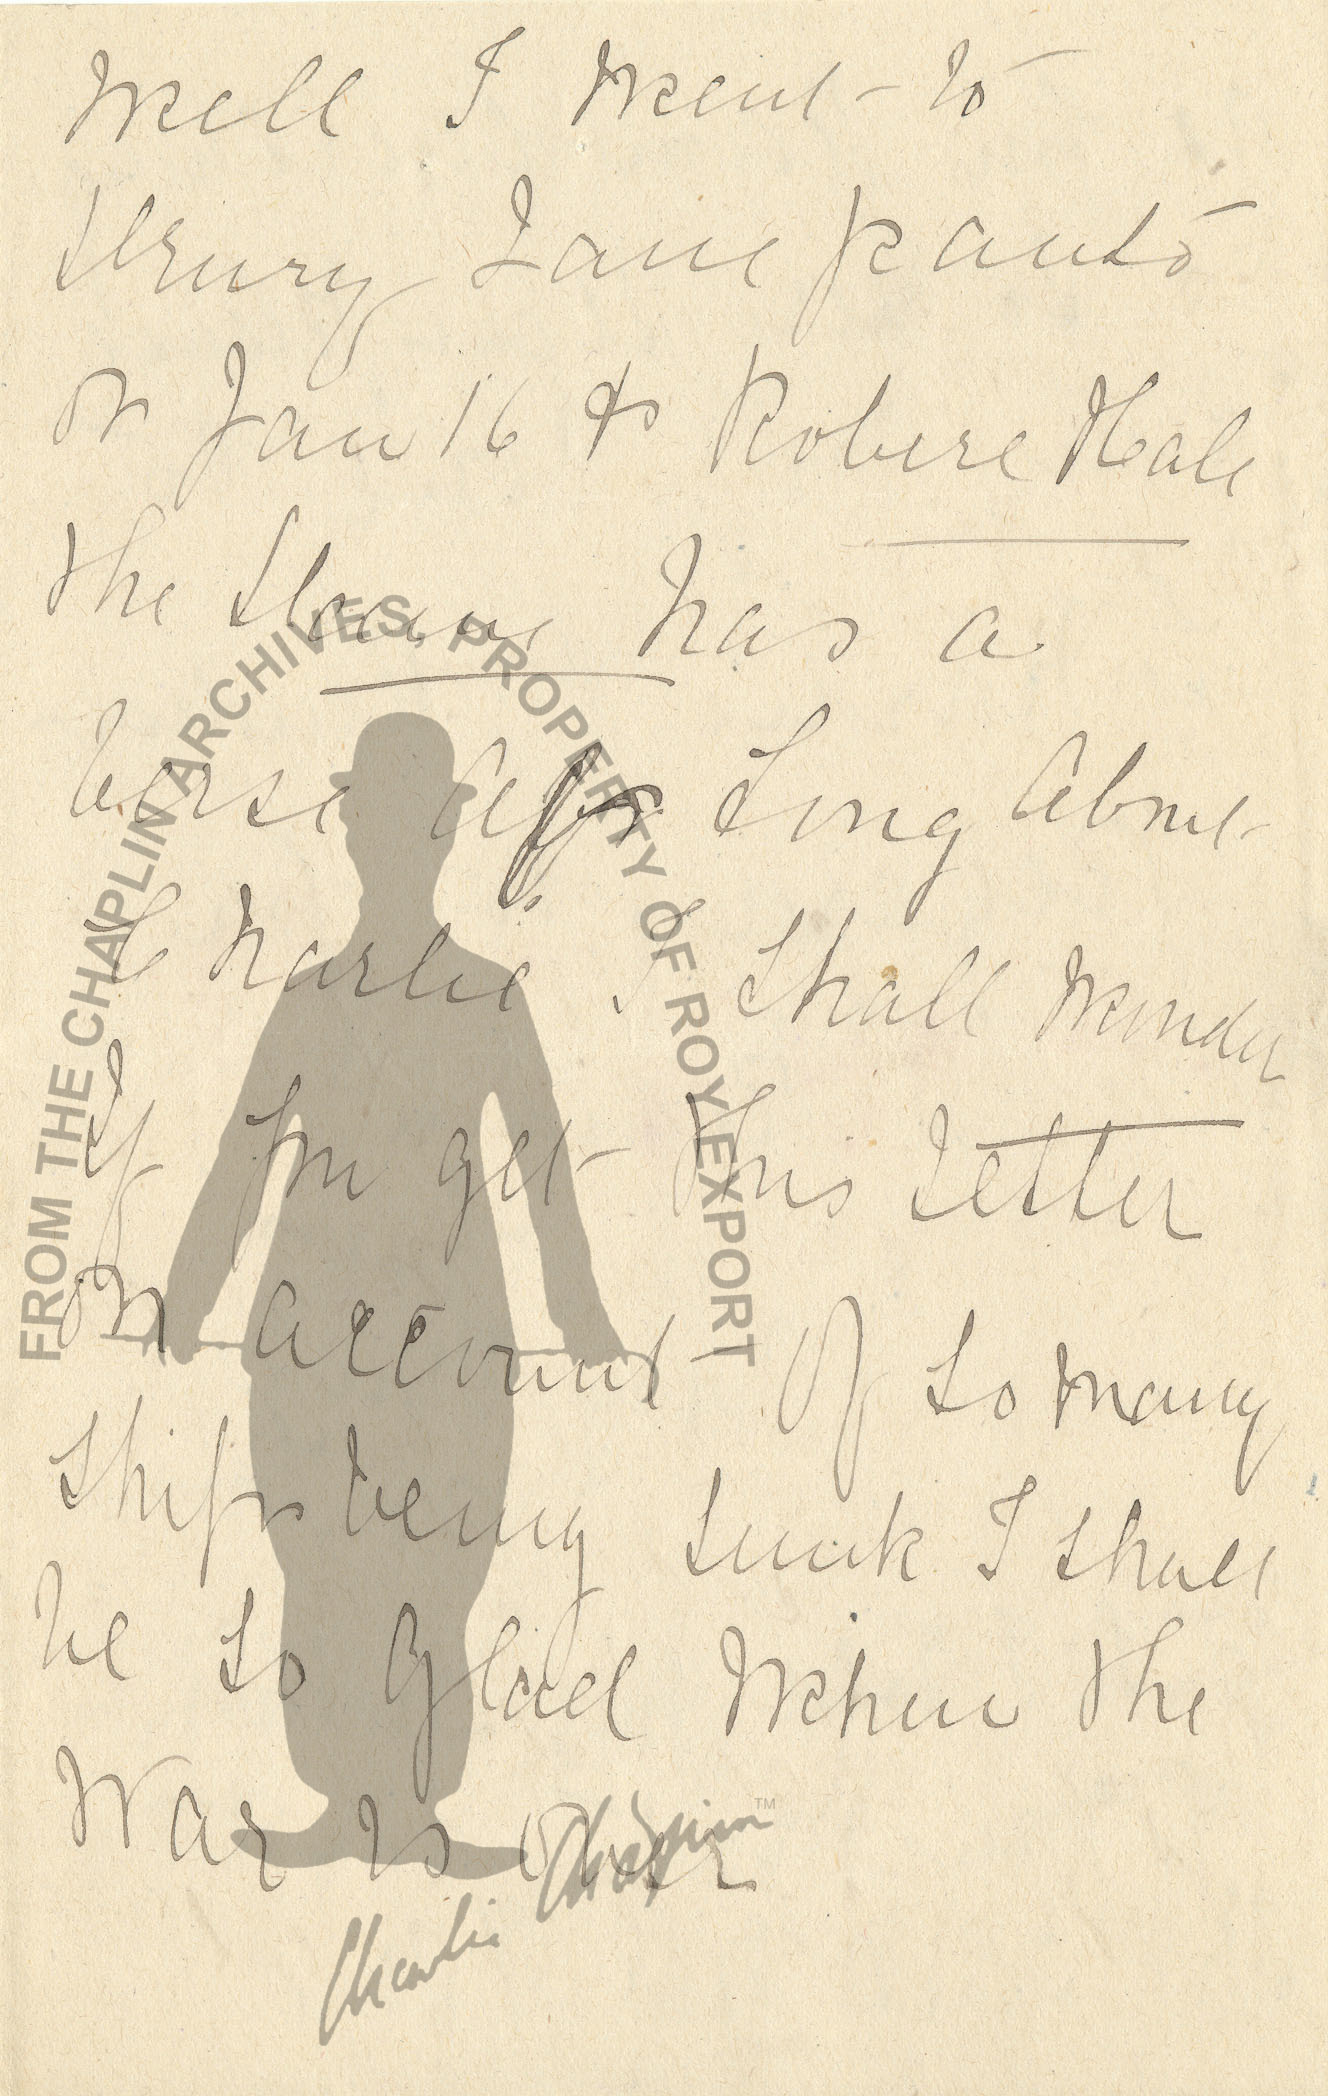 Well I went to
Drury Lane panto
on Jan 16 & Robert Hale
the Dame has a
verse of song about
Charlie I shall wonder
If you get this letter
on account of so many
ships being sunk I shall
be so glad when the
War is over
FROM THE CHAPLIN ARCHIVES, PROPERTY OF ROY EXPORT
Charlie Chaplin™